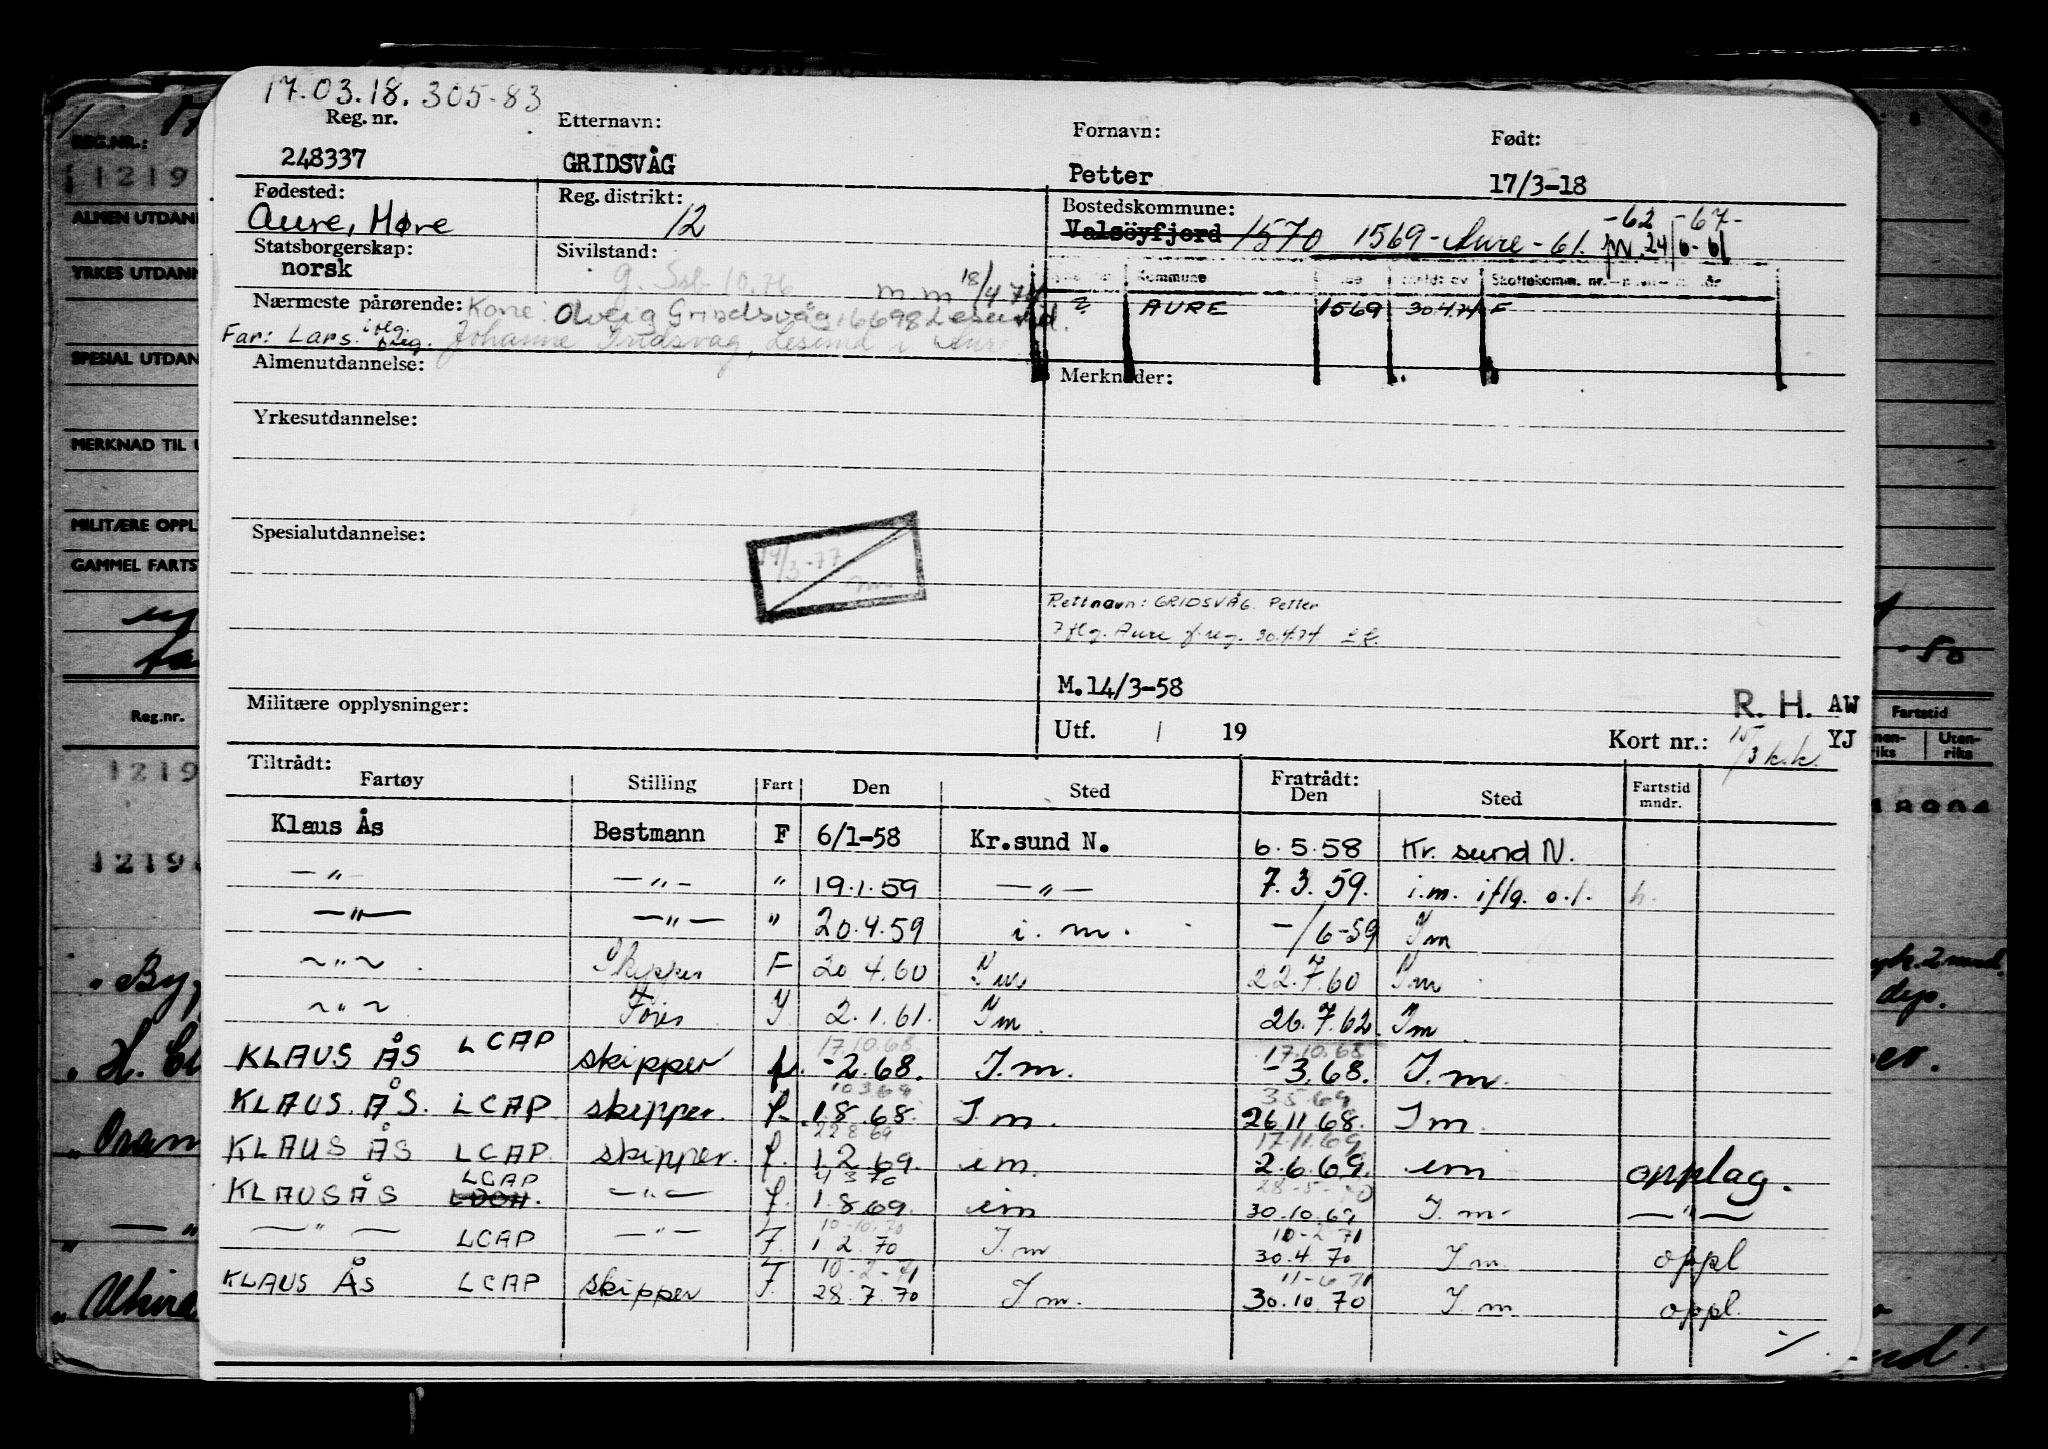 17.03.18. 305-83
Reg. nr. Etternavn: Fornavn: Født:
248337 GRIDSVÅG Petter 17/3-18
Fødested: Reg. distrikt: Bostedskommune:
Aure, Møre 12 Valsöyfjord 1570 1569-Aure-61. -62 -67-
24/6-61
Statsborgerskap: Sivilstand:
norsk g. Ssb 10.76 Kommune
mm 18/4 74
Nærmeste pårørende: Kone: Olveig Gridsvåg, 6698 Lesund.
2 AURE 1569 30.4.74 F
Far: Lars. Johanne Gridsvåg, Lesund i Aure
Almenutdannelse: Merknader:
Yrkesutdannelse:
Spesialutdannelse:
14/3-77
Rettnavn: GRIDSVÅG. Petter
iflg. Aure f.reg. 30.4.74
M.14/3-58
Militære opplysninger:
R. H. AW
Utf. / 19 Kort nr.: 15/3 k.k. YJ
Tiltrådt: Fratrådt:
Fartøy Stilling Fart Den Sted Den Sted Fartstid mndr.
Klaus Ås Bestmann F 6/1-58 Kr.sund N. 6.5.58 Kr. sund N.
— " — — " — " 19.1.59 — " — 7.3.59. i.m. iflg. o.l. h.
— " — — " — " 20.4.59 i. m. -/6-59 Im
~ " ~ Skipper F 20 4.60 Im 22.7.60 Im
~ " ~ Fører 2.1.61. Im. 26.7.62. Im
17.10.68. 17.10.68
KLAUS ÅS LCAP skipper f. -2.68. I.m. -3.68. I.m.
10 3 69 3 5 69
KLAUS ÅS. LCAP skipper. f. 1.8.68. I m. 26.11.68. I m.
22 8 69 17.11.69
KLAUS ÅS LCAP. skipper. f. 1.2.69. im. 2.6.69. im opplag.
4 3 70 28-5-70
KLAUS ÅS LCAP — " — f. 1.8.69. im 30.10.69 I.m. — " —
10-10.70 10-2 71
— " — LCAP — " — F. 1 2. 70 I.m 30.4.70 I.m. oppl
10-2-71 11-6 71
KLAUS ÅS LCAP skipper F. 28.7.70 I m. 30.10.70 I.m oppl.
REG.NR.:
1219
ALMEN UTDANN
YRKES UTDANN
SPESIAL UTDAN
MERKNAD TIL U
MILITÆRE OPPL
GAMMEL FARTS
Reg.nr.
1219
1219
-50
Fartstid
Uten-
riks
dep.